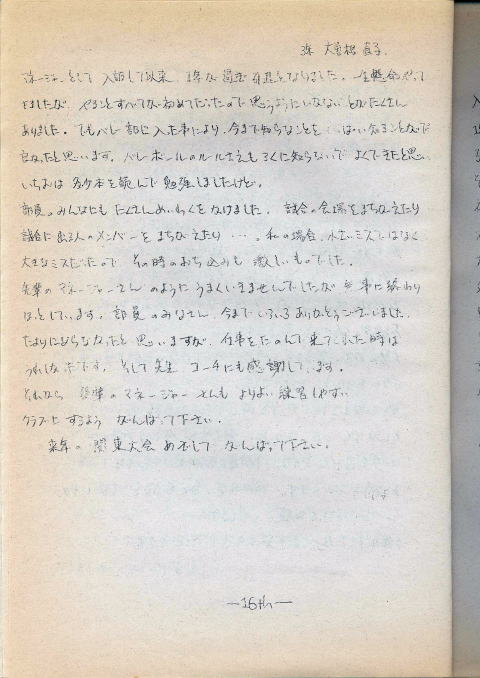 大曽根 直子
マネージャーとして入部して以来、1年が過ぎ引退となりました。一生懸命やって
きましたが、やることすべてが初めてだったので思うようにいかないことがたくさん
ありました。でもバレー部に入った事により、今まで知らなことをいっぱい知ることができ
良かったと思います。バレーボールのルールさえもろくに知らないでよくできたと思い
いちおは 本を読んで勉強しましたけど。
部員のみんなにもたくさんめいわくをかけました。試合の会場をまちがえたり
試合に出る人のメンバーをまちがえたり…。私の場合、小さいミスではなく
大きなミスだったのでその時のおち込みも激しいものでした。
先輩のマネージャーさんのようにうまくいきませんでしたが無事に終わり
ほっとしています。部員のみなさん、今までいろいろありがとうございました。
たよりにならなかったと思いますが、仕事をたのんで来てくれた時は
うれしかったです。そして先生、コーチにも感謝しています。
それから後輩のマネージャーさんもよりよい練習しやすい
クラブにするようがんばって下さい。
来年の関東大会めざしてがんばって下さい。
—16th—